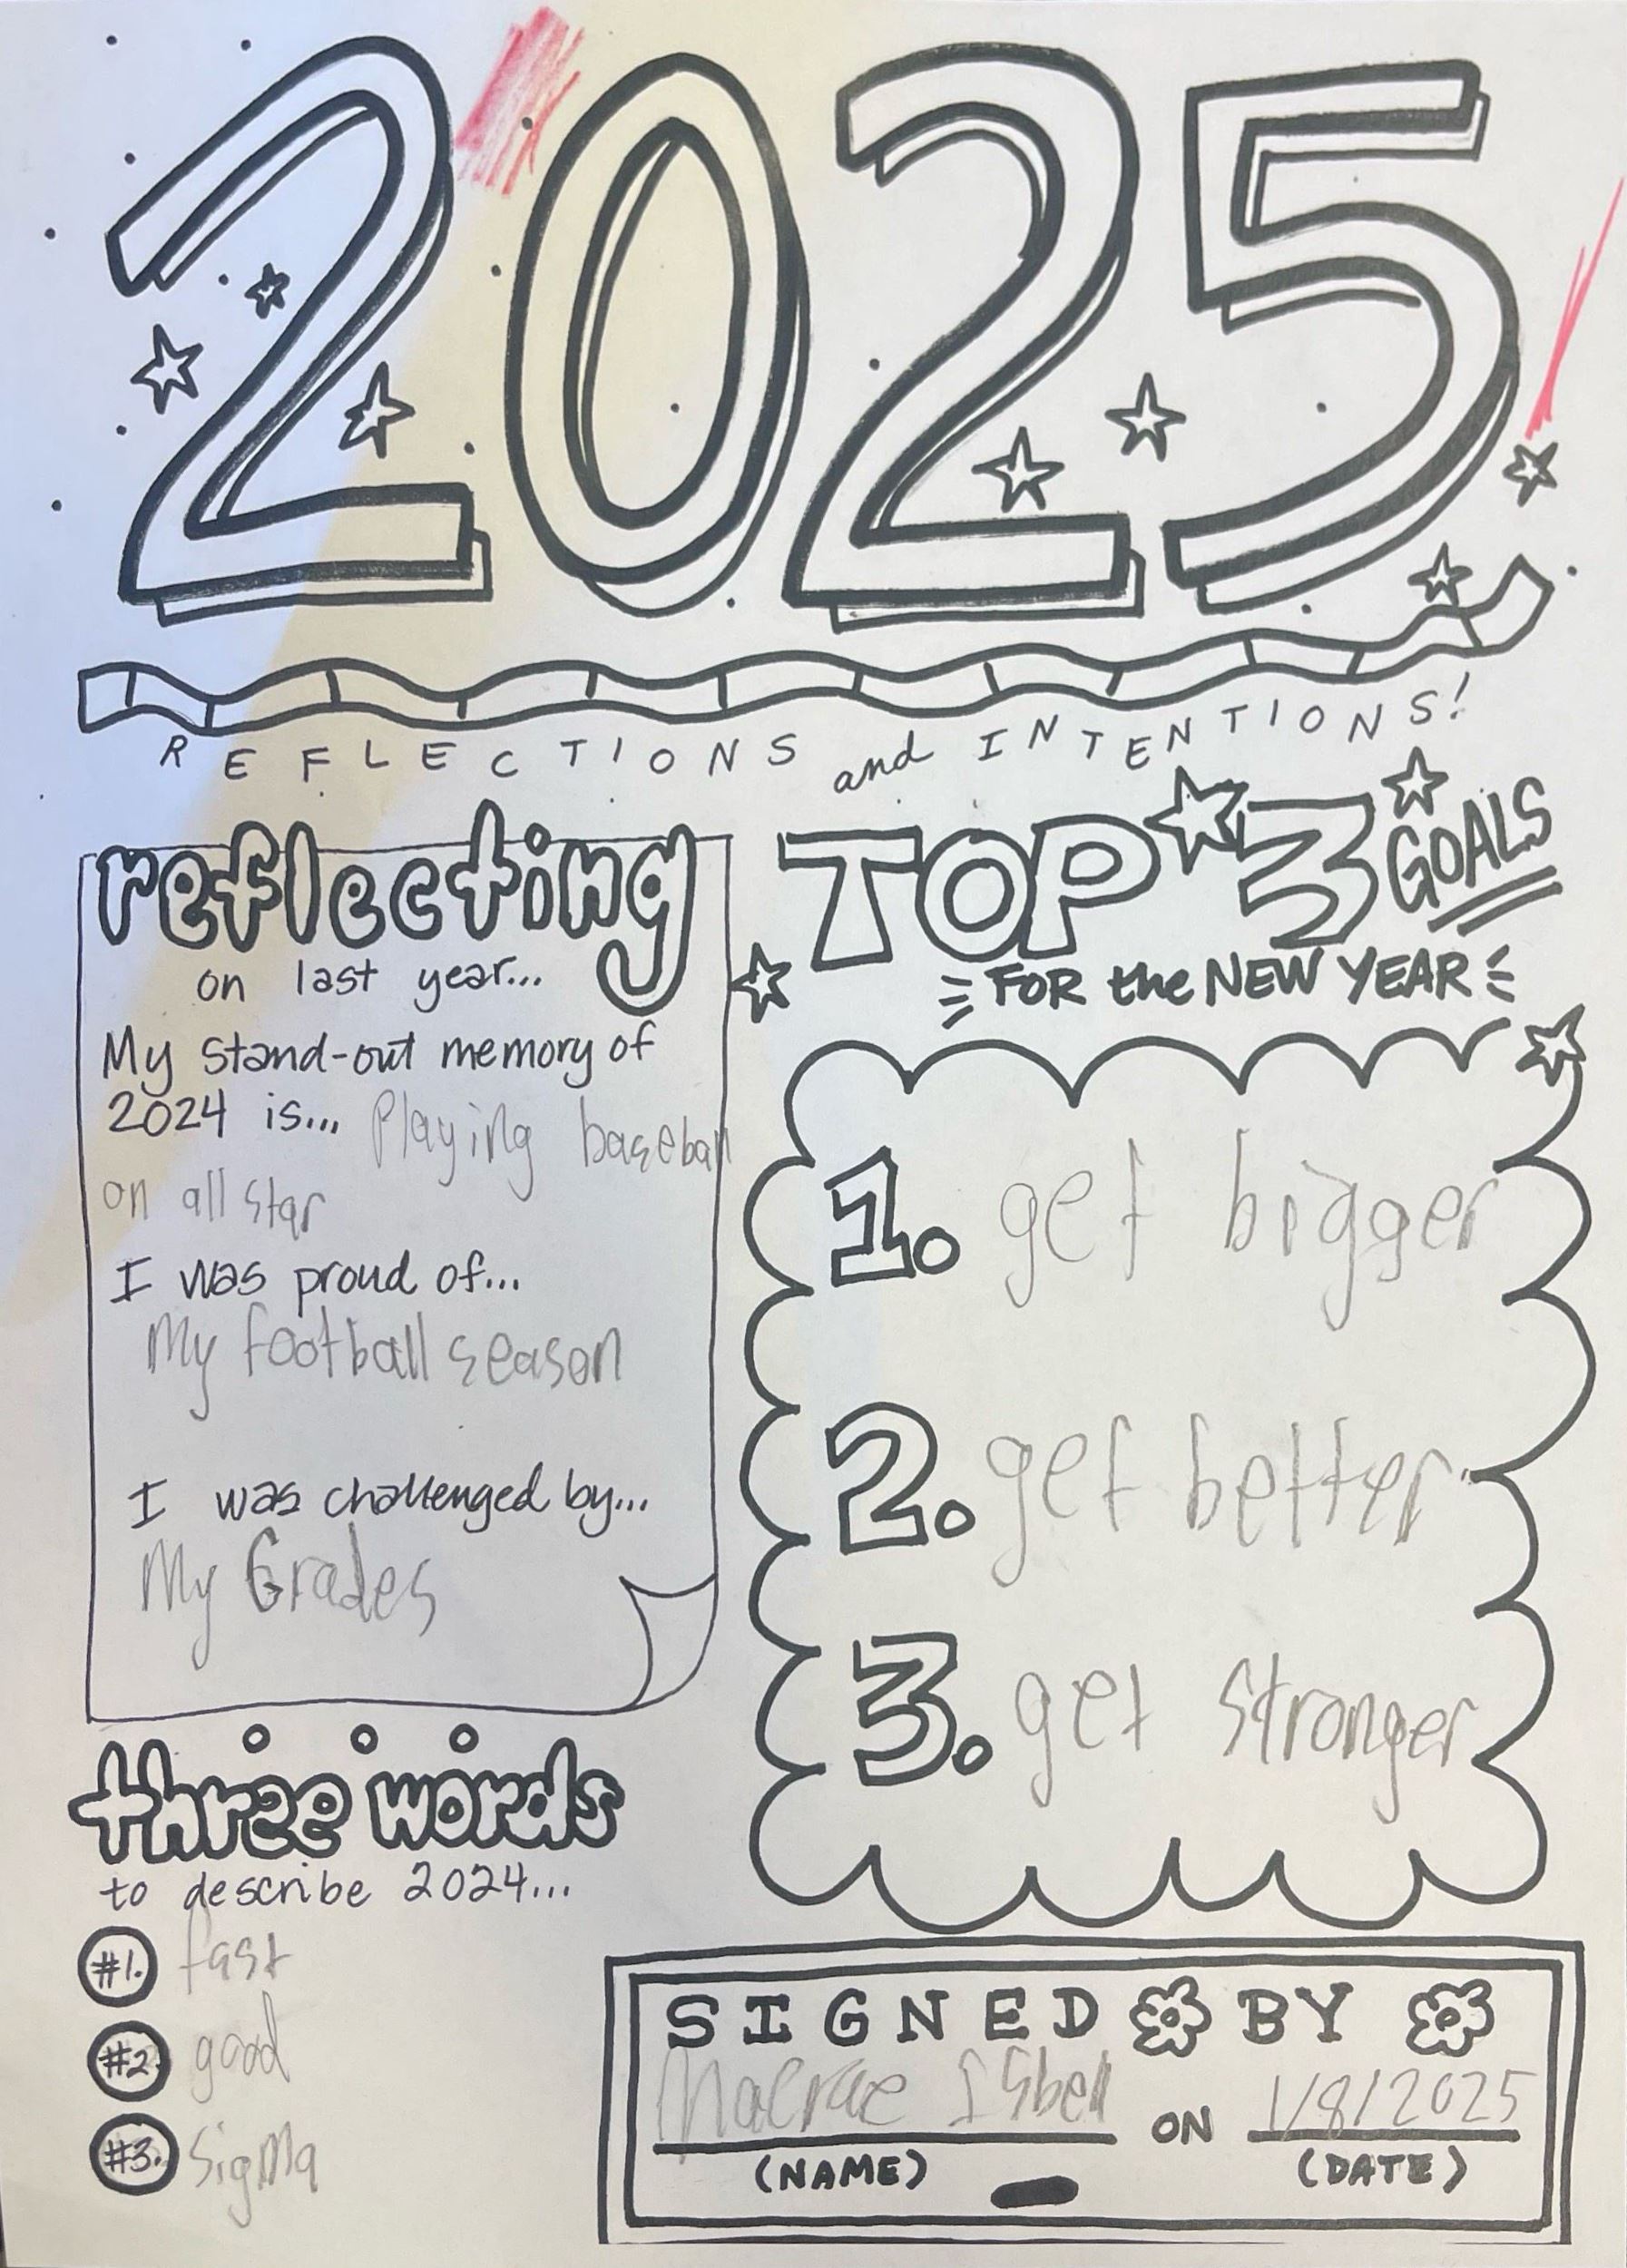 2025
REFLECTIONS and INTENTIONS!
reflecting
on last year...
My stand-out memory of
2024 is... Playing baseball
on all star
I was proud of...
My football season
I was challenged by...
My Grades
three words
to describe 2024...
#1. fast
#2. good
#3. sigma
TOP 3 GOALS
FOR the NEW YEAR
1. get bigger
2. get better
3. get stronger
SIGNED BY
Macrae Isbell ON 1/8/2025
(NAME) (DATE)